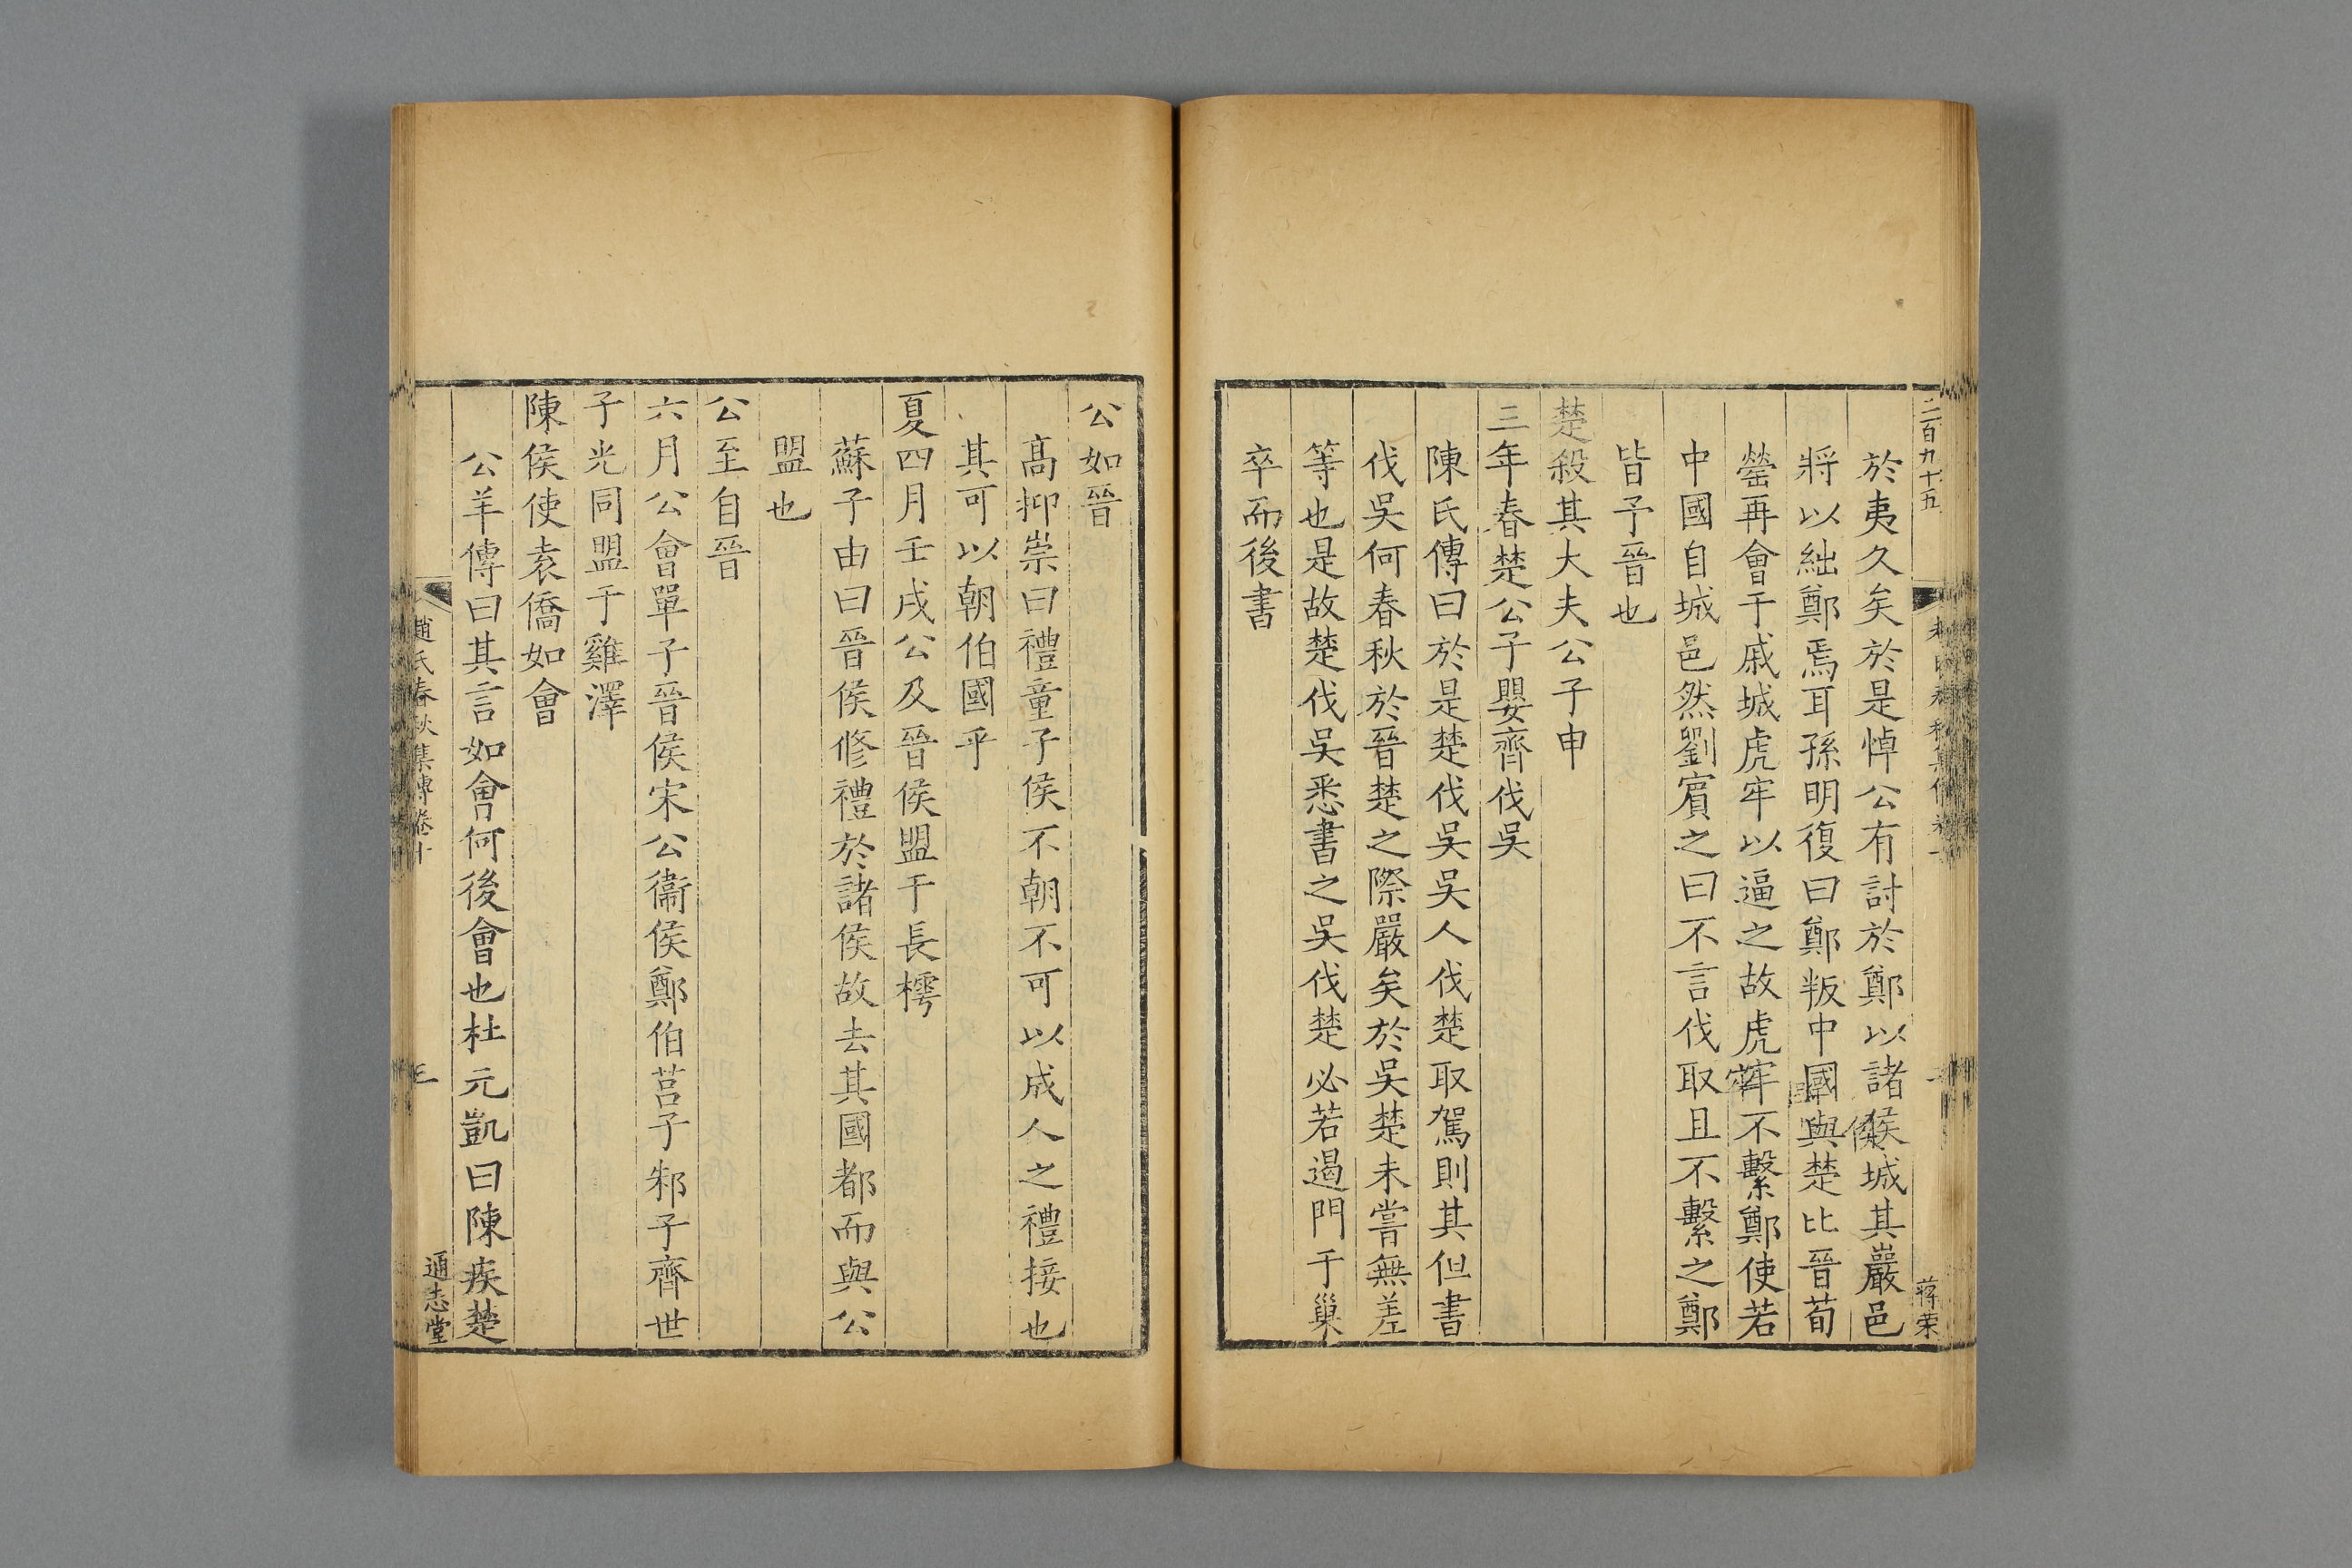 二百九十五
蒋荣
於夷久矣於是悼公有討於鄭以諸侯城其巖邑
將以絀鄭焉耳孫明復曰鄭叛中國與楚比晉荀
罃再會于戚城虎牢以逼之故虎牢不繫鄭使若
中國自城邑然劉賔之曰不言伐取且不繫之鄭
皆予晉也
楚殺其大夫公子申
三年春楚公子嬰齊伐吳
陳氏傳曰於是楚伐吳吳人伐楚取駕則其但書
伐吳何春秋於晉楚之際嚴矣於吳楚未嘗無差
等也是故楚伐吳悉書之吳伐楚必若遏門于巢
卒而後書
公如晉
髙抑崇曰禮童子侯不朝不可以成人之禮接也
其可以朝伯國乎
夏四月壬戌公及晉侯盟于長樗
蘇子由曰晉侯修禮於諸侯故去其國都而與公
盟也
公至自晉
六月公會單子晉侯宋公衞侯鄭伯莒子邾子齊世
子光同盟于雞澤
陳侯使袁僑如會
公羊傳曰其言如會何後會也杜元凱曰陳疾楚
趙氏春秋集傳卷十
三
通志堂